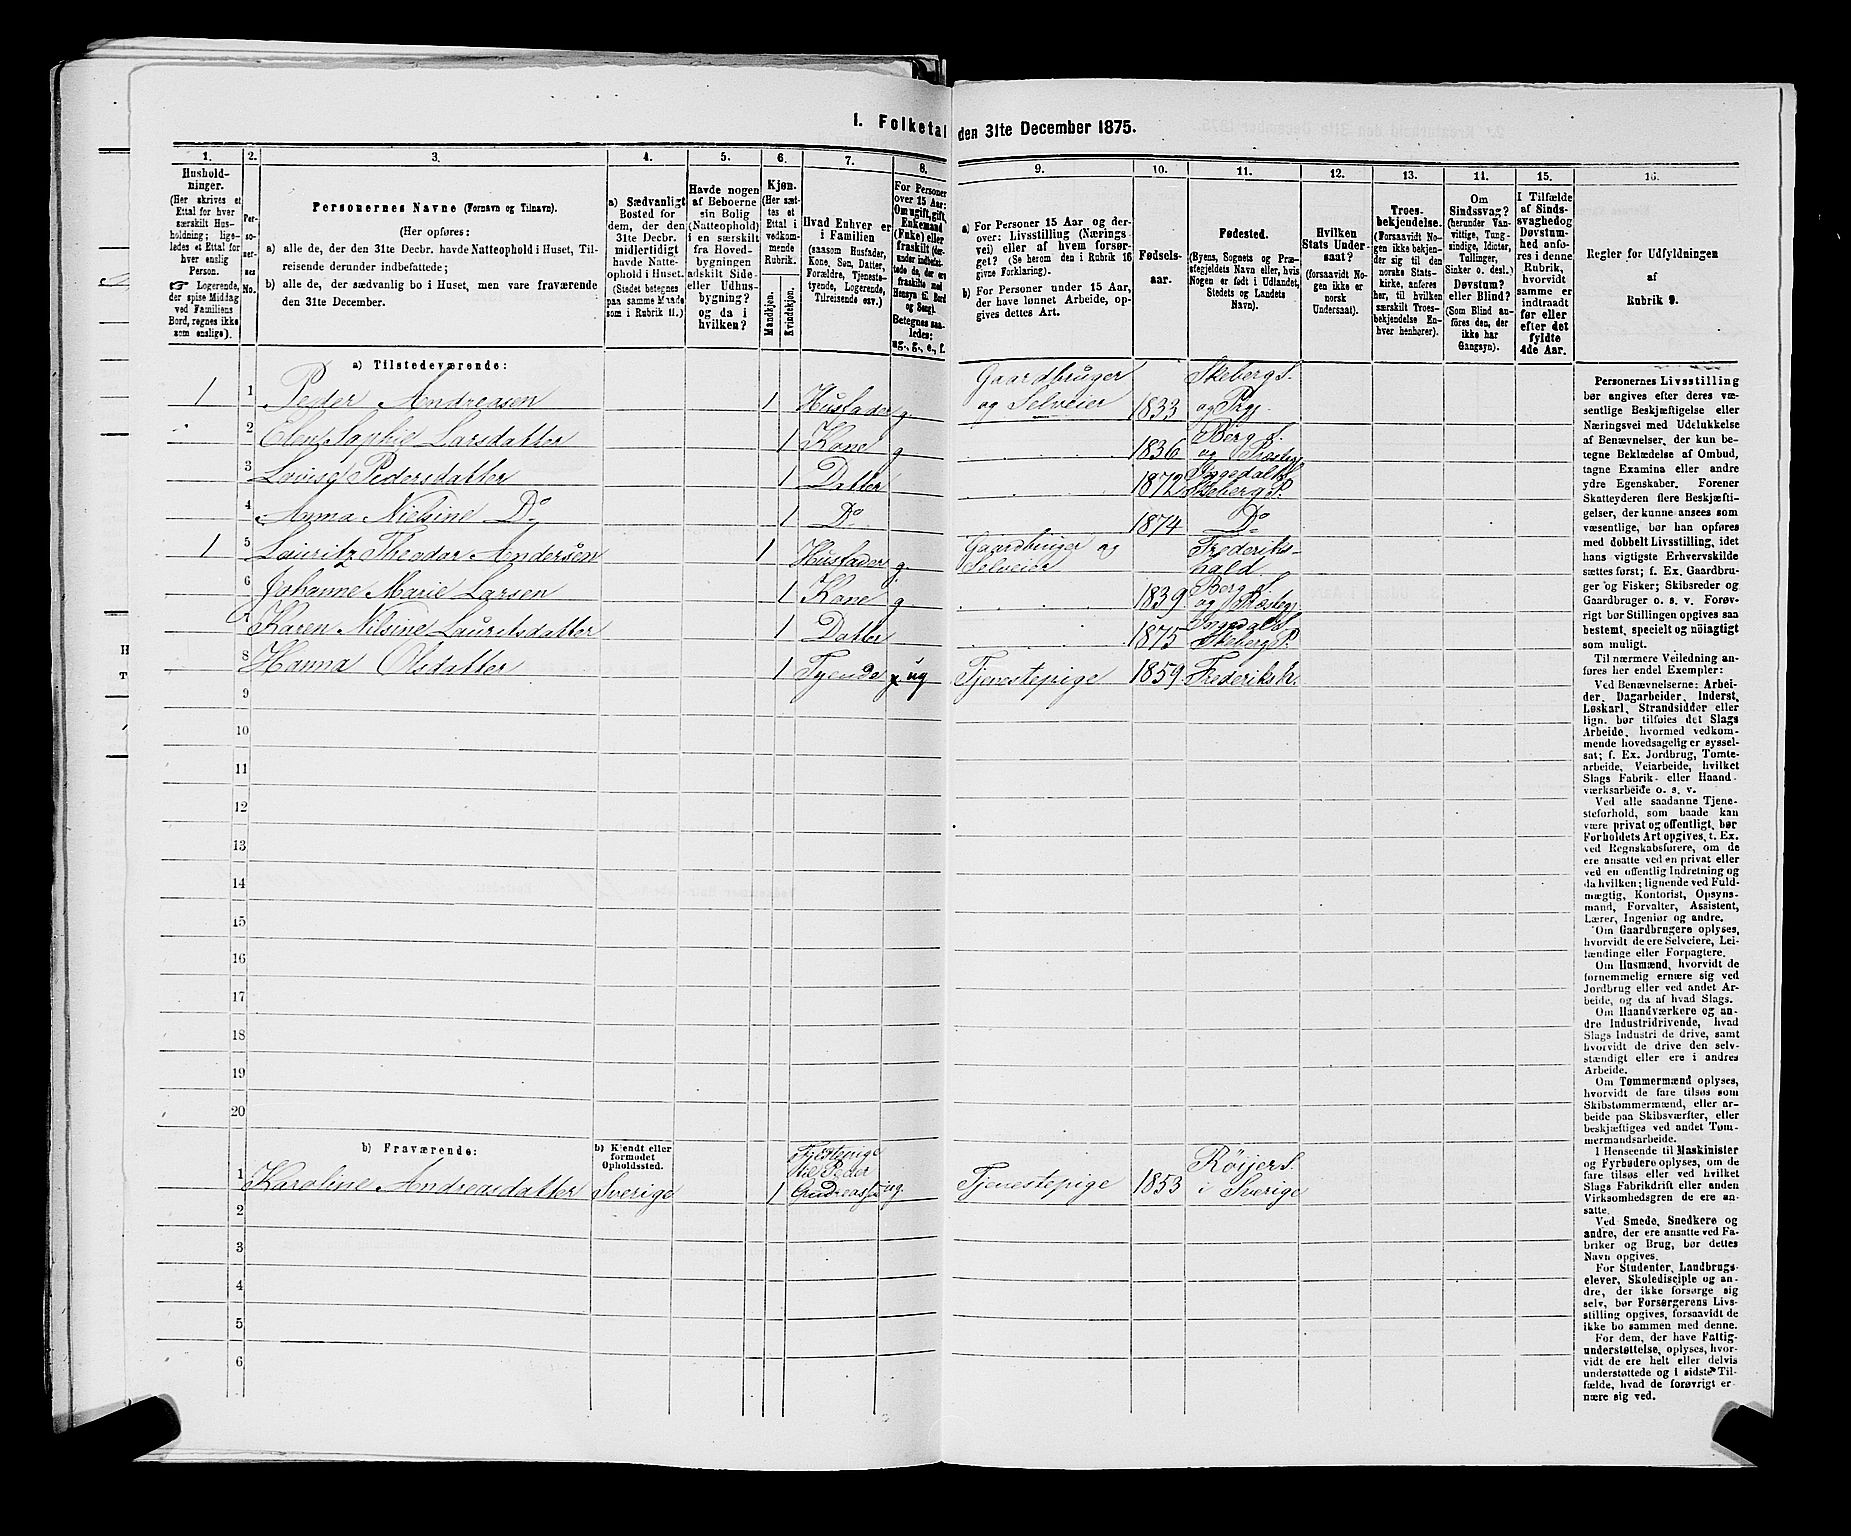 I. Folketal den 31te December 1875.
1.
2.
3.
4.
5.
6.
7.
8.
9.
10.
11.
12.
13.
14.
15.
16.
Hushold-
ninger.
(Her skrives et
Ettal for hver
særskilt Hus-
holdning; lige-
ledes et Ettal for
hver enslig
Person.
☞ Logerende,
der spise Middag
ved Familiens
Bord, regnes ikke
som enslige).
Per-
so-
ner-
nes
No.
Personernes Navne (Fornavn og Tilnavn).
(Her opføres:
a) alle de, der den 31te Decbr. havde Natteophold i Huset, Til-
reisende derunder indbefattede;
b) alle de, der sædvanlig bo i Huset, men vare fraværende
den 31te December.
a) Sædvanligt
Bosted for
dem, der den
31te Decbr.
midlertidigt
havde Natte-
ophold i Huset.
(Stedet betegnes
paa samme Maade
som i Rubrik 11.)
Havde nogen
af Beboerne
sin Bolig
(Natteophold)
i en særskilt
fra Hoved-
bygningen
adskilt Side-
eller Udhus-
bygning?
og da i
hvilken?
Kjøn.
(Her sæt-
tes et
Ettal i
vedkom-
mende
Rubrik.
Mandkjøn.
Kvindekjøn.
Hvad Enhver er
i Familien
(saasom Husfader,
Kone, Søn, Datter,
Forældre, Tjeneste-
tyende, Logerende,
Tilreisende osv.)
For Personer
over 15 Aar:
Om ugift, gift,
Enkemand
(Enke) eller
fraskilt (der-
under indbefat-
tede de, der ere
fraskilte med
Hensyn til Bord
og Seng).
Betegnes saa-
ledes:
ug., g., e., f.
a) For Personer 15 Aar og der-
over: Livsstilling (Nærings-
vei) eller af hvem forsør-
get? (Se herom den i Rubrik 16
givne Forklaring).
b) For Personer under 15 Aar,
der have lønnet Arbeide, op-
gives dettes Art.
Fødsels-
aar.
Fødested.
(Byens, Sognets og Præ-
stegjeldets Navn eller, hvis
Nogen er født i Udlandet,
Stedets og Landets
Navn).
Hvilken
Stats Under-
saat?
(forsaavidt No-
gen ikke er
norsk
Undersaat).
Troes-
bekjendelse.
(Forsaavidt No-
gen ikke bekjen-
der sig til den
norske Stats-
kirke, anføres
her, til hvilken
særskilt Troes-
bekjendelse En-
hver henhører).
Om
Sindssvag?
(herunder Van-
vittige, Tung-
sindige, Idioter,
Tullinger,
Sinker o. desl.)
Døvstum?
eller Blind?
(Som Blind an-
føres den, der
ikke har
Gangsyn).
I Tilfælde
af Sinds-
svaghed og
Døvstum-
hed anfø-
res i denne
Rubrik,
hvorvidt
samme er
indtraadt
før eller
efter det
fyldte
4de Aar.
Regler for Udfyldningen
af
Rubrik 9.
a) Tilstedeværende:
1 1 Peder Andreasen 1 Husfader g. Gaardbruger og Selveier 1833 Skeberg S. og Prgj.
2 Elen Sophie Larsdatter 1 Kone g 1836 Berg S. og Præstegj
3 Lovise Pedersdatter 1 Datter 1872 Ingedals S. Skeberg P.
4 Anna Nielsine Do 1 Do 1874 Do
1 5 Lauritz Theodor Andersen 1 Husfader g. Gaardbruger og Selveier Frederiks-hald
6 Johanne Marie Larsen 1 Kone g 1839 Berg S. og Præstegj
7 Karen Nilsine Lauritsdatter 1 Datter 1875 Ingedals S. Skeberg P.
8 Hanna Olsdatter 1 Tyende ug Tjenestepige 1859 Frederiksh.
9
10
11
12
13
14
15
16
17
18
19
20
b) Fraværende:
b) Kjendt eller
formodet
Opholdssted.
1 Karoline Andreasdatter Sverige 1 Tjenestepige til Peder Andreasen ug. Tjenestepige 1853 i Sverige
2
3
4
5
6
Personernes Livsstilling
bør angives efter deres væ-
sentlige Beskjæftigelse eller
Næringsvei med Udelukkelse
af Benævnelser, der kun be-
tegne Beklædelse af Ombud,
tagne Examina eller andre
ydre Egenskaber. Forener
Skatteyderen flere Beskjæfti-
gelser, der kunne ansees som
væsentlige, bør han opføres
med dobbelt Livsstilling, idet
hans vigtigste Erhvervskilde
sættes først; f. Ex. Gaardbru-
ger og Fisker; Skibsreder og
Gaardbruger o. s. v. Forøv-
rigt bør Stillingen opgives saa
bestemt, specielt og nöiagtigt
som muligt.
Til nærmere Veiledning an-
føres her endel Exempler:
Ved Benævnelserne: Arbei-
der, Dagarbeider, Inderst,
Løskarl, Strandsidder eller
lign. bør tilføies det Slags
Arbeide, hvormed vedkom-
mende hovedsagelig er syssel-
sat; f. Ex. Jordbrug, Tomte-
arbeide, Veiarbeide, hvilket
Slags Fabrik- eller Haand-
værksarbeide o. s. v.
Ved alle saadanne Tjene-
steforhold, som baade kan
være privat og offentligt, bør
Forholdets Art opgives, t. Ex.
ved Regnskabsførere, om de
ere ansatte ved en privat eller
ved en offentlig Indretning og
da hvilken; lignende ved Fuld-
mægtig, Kontorist, Opsyns-
mand, Forvalter, Assistent,
Lærer, Ingeniør og andre.
Om Gaardbrugere oplyses,
hvorvidt de ere Selveiere, Lei-
lændinge eller Forpagtere.
Om Husmænd, hvorvidt de
fornemmelig ernære sig ved
Jordbrug eller ved andet Ar-
beide, og da af hvad Slags.
Om Haandværkere og an-
dre Industridrivende, hvad
Slags Industri de drive, samt
hvorvidt de drive den selv-
stændigt eller ere i andres
Arbeide.
Om Tømmermænd oplyses,
hvorvidt de fare tilsøs som
Skibstømmermænd, eller ar-
beide paa Skibsværfter, eller
beskjæftiges ved andet Tøm-
mermandsarbeide.
I Henseende til Maskinister
og Fyrbødere oplyses, om de
fare tilsøs eller ved hvilket
Slags Fabrikdrift eller anden
Virksomhedsgren de ere an-
satte.
Ved Smede, Snedkere og
andre, der ere ansatte ved Fa-
briker og Brug, bør dettes
Navn opgives.
For Studenter, Landbrugs-
elever, Skoledisciple og an-
dre, der ikke forsørge sig
selv, bør Forsørgerens Livs-
stilling opgives, forsaavidt de
ikke bo sammen med denne.
For dem, der have Fattig-
understøttelse, oplyses, hvor-
vidt de ere helt eller delvis
understøttede og i sidste Til-
fælde, hvad de forøvrigt er-
nære sig ved.